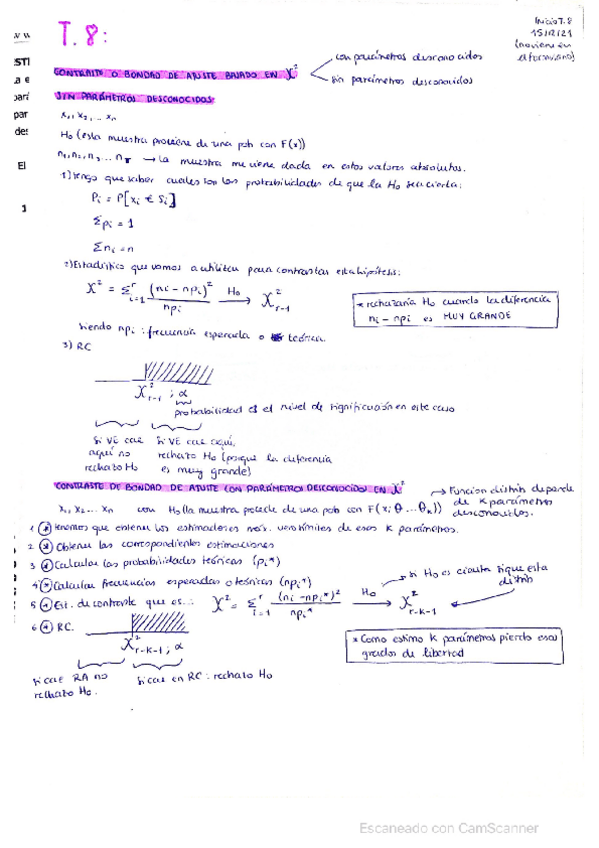 T.8:
Inicio T.8
15/12/21
(no viene en
el formulario)
CONTRASTE O BONDAD DE AJUSTE BASADO EN X²
con parámetros desconocidos
sin parámetros desconocidos
SIN PARÁMETROS DESCONOCIDOS:
x₁, x₂, ... xₙ
H₀ (esta muestra proviene de una pob con F(x))
n₁, n₂, n₃ ... nᵣ → la muestra me viene dada en estos valores absolutos.
1) Tengo que saber cuales son las probabilidades de que la H₀ sea cierta:
Pᵢ = P[xᵢ ∈ Sᵢ]
Σpᵢ = 1
Σnᵢ = n
2) Estadístico que vamos a utilizar para contrastar esta hipótesis:
X² = Σʳᵢ₌₁ (nᵢ - npᵢ)² / npᵢ —H₀→ X²ᵣ₋₁
* rechazaría H₀ cuando la diferencia
nᵢ - npᵢ es MUY GRANDE
siendo npᵢ: frecuencia esperada o teórica.
3) RC
X²ᵣ₋₁ ; α
probabilidad es el nivel de significación en este caso
si VE cae
aquí no
rechazo H₀
si VE cae aquí,
rechazo H₀ (porque la diferencia
es muy grande)
CONTRASTE DE BONDAD DE AJUSTE CON PARÁMETROS DESCONOCIDOS EN X²
→ Funcion distrib depende
de k parámetros
desconocidos.
x₁, x₂ ... xₙ con H₀ (la muestra procede de una pob con F(x; θ ... θₖ))
1 * tenemos que obtener los estimadores máx. verosímiles de esos k parámetros.
2 * Obtener las correspondientes estimaciones
3 * Calcular las probabilidades teóricas (pᵢ*)
4 * Calcular frecuencias esperadas o teóricas (npᵢ*)
si H₀ es cierta sigue esta
distrib
5 * Est. de contraste que es..: X² = Σʳᵢ₌₁ (nᵢ - npᵢ*)² / npᵢ* —H₀→ X²ᵣ₋ₖ₋₁
6 * RC.
X²ᵣ₋ₖ₋₁ ; α
* Como estimo k parámetros pierdo esos
grados de libertad
si cae RA no
rechazo H₀.
si cae en RC: rechazo H₀
Escaneado con CamScanner